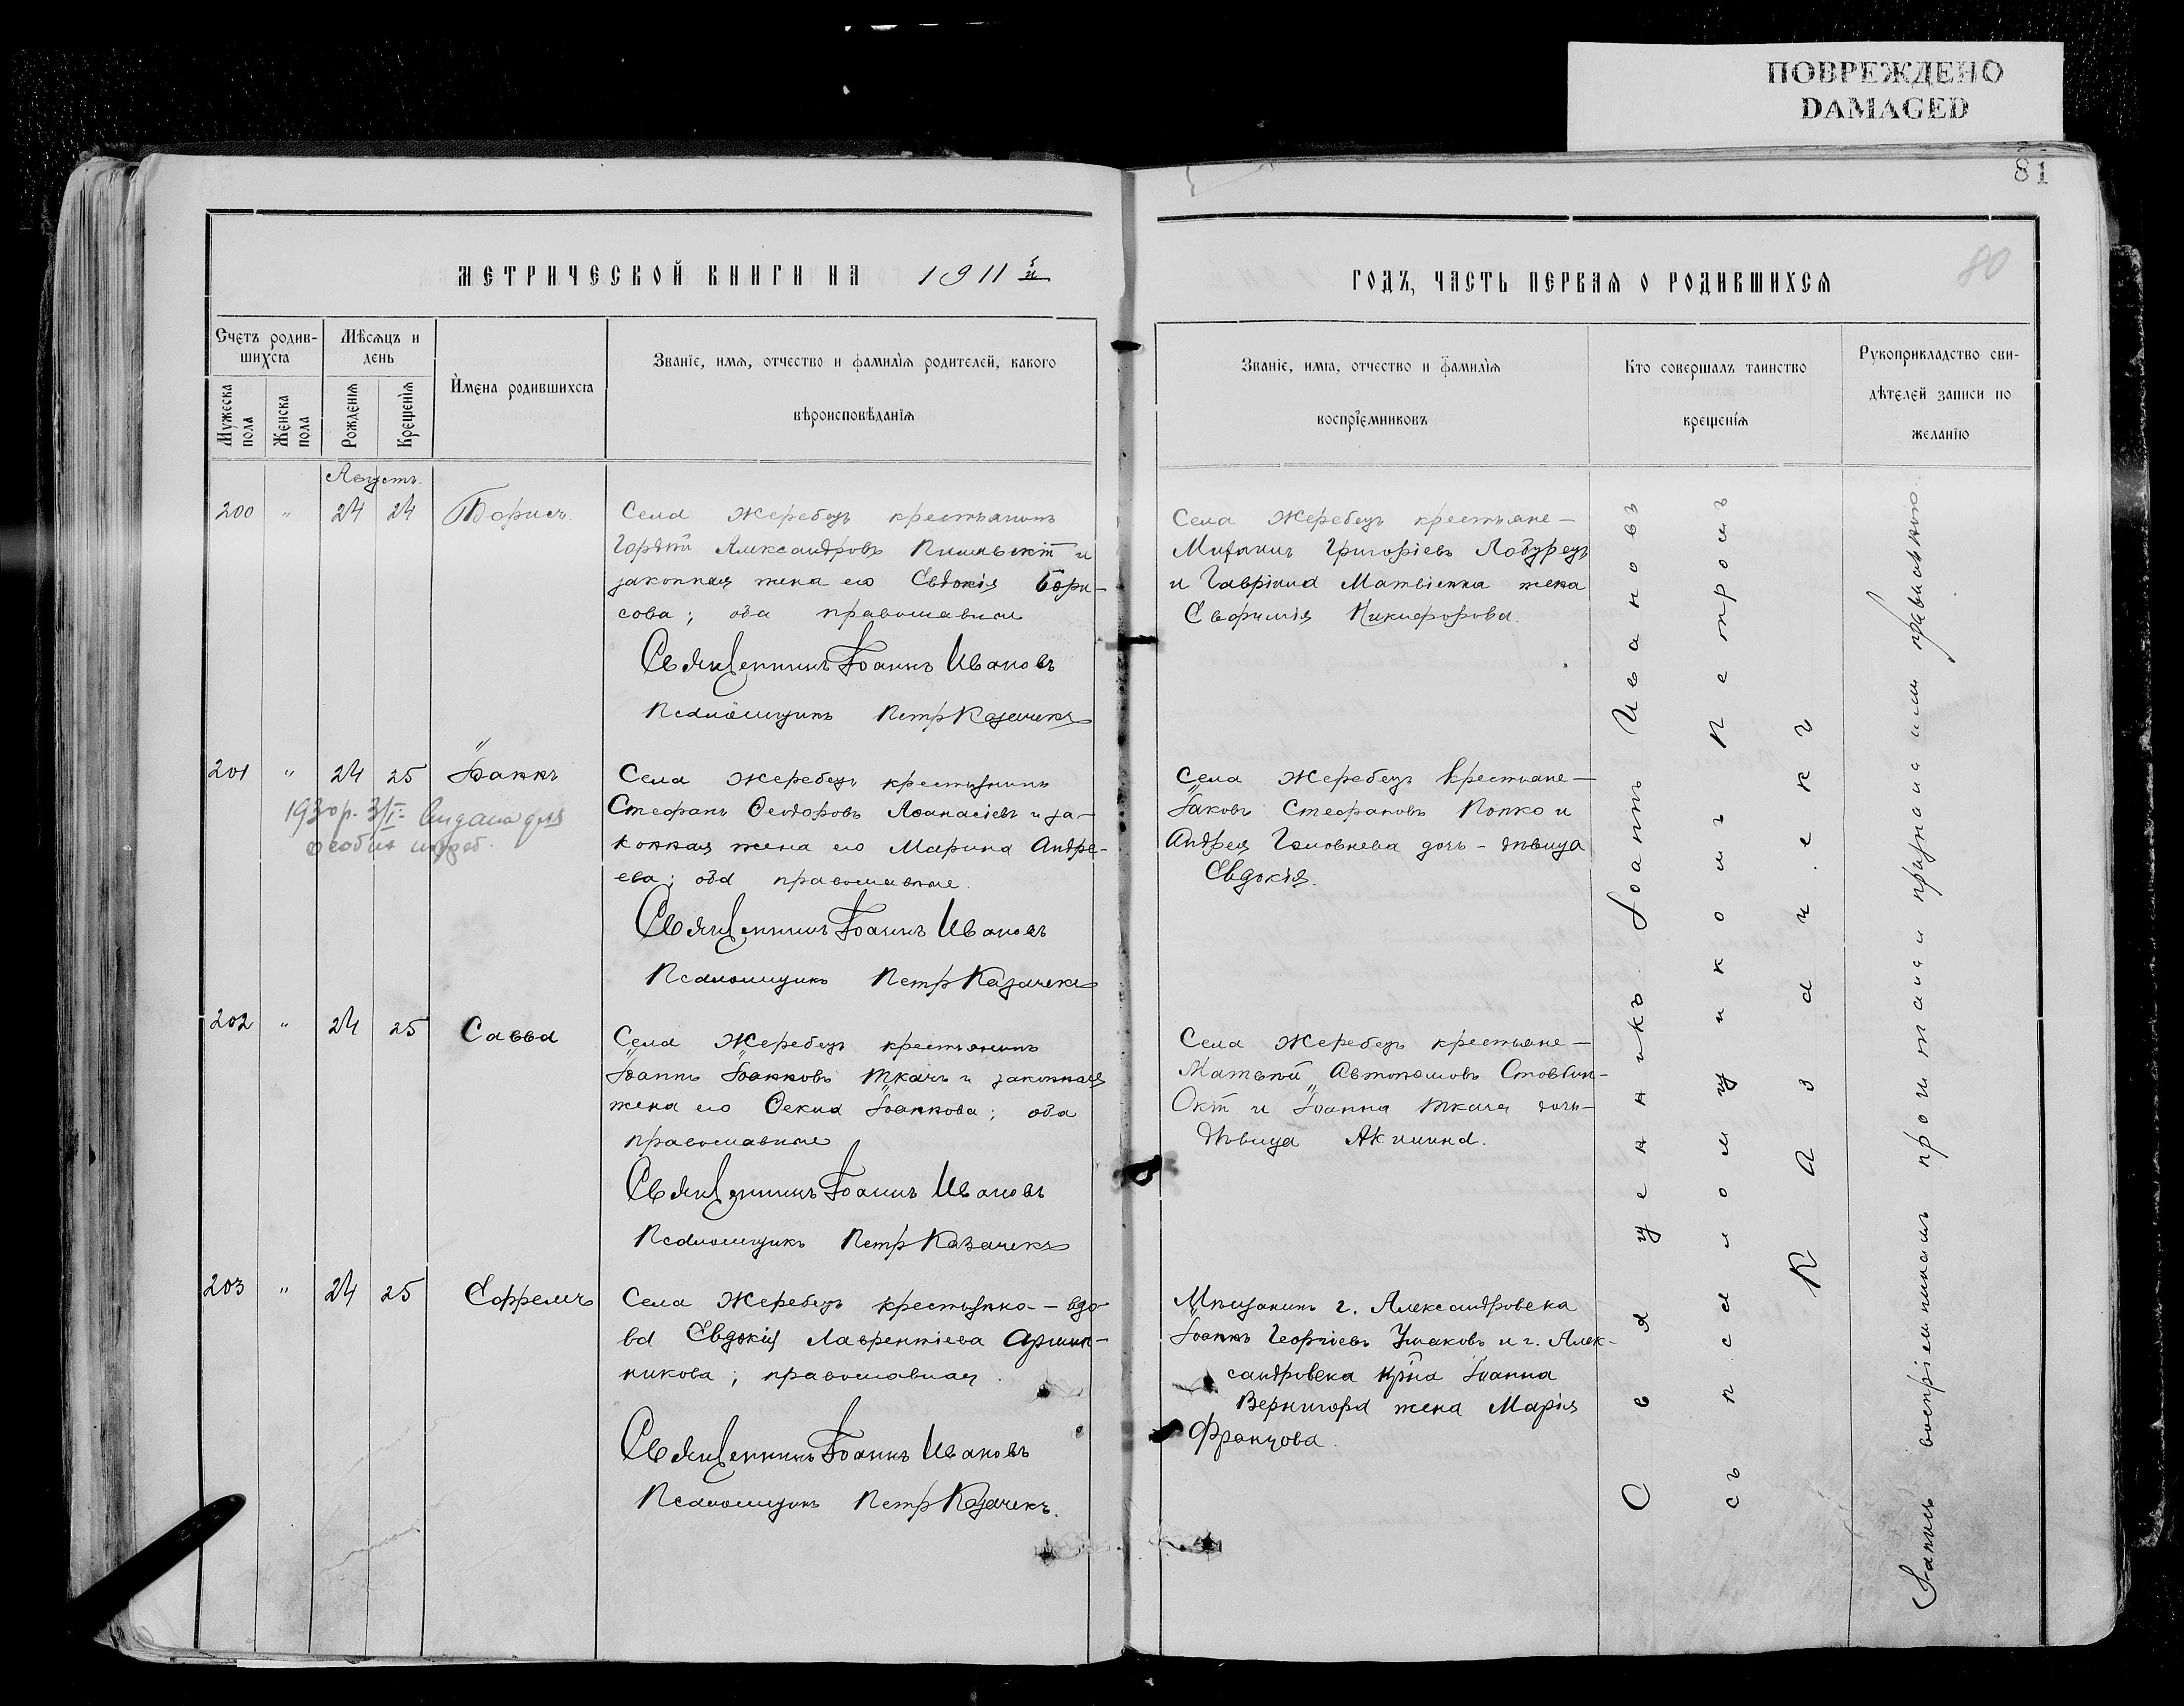 ПОВРЕЖДЕНО
DAMAGED
81
80
МЕТРИЧЕСКОЙ КНИГИ НА 1911 й
ГОДЪ, ЧАСТЬ ПЕРВАЯ О РОДИВШИХСЯ
Счетъ родив-
шихся
Мѣсяцъ и
день
Имена родившихся
Званіе, имя, отчество и фамилія родителей, какого
вѣроисповѣданія
Мужеска
пола
Женска
пола
Рожденія
Крещенія
Званіе, имя, отчество и фамилія
воспріемниковъ
Кто совершалъ таинство
крещенія
Рукоприкладство сви-
дѣтелей записи по
желанію
Августъ.
200 " 24 24 Борисъ.
Села Жеребецъ крестьянинъ
Гордѣй Александровъ и
законная жена его Евдокія Бори-
сова; оба православные
Священникъ Іоаннъ Ивановъ
Псаломщикъ Петръ Казачекъ
Села Жеребецъ крестьяне-
Григоріевъ Лобурецъ
и Гавріила Матвіенка жена
Евфимія Никифорова.
201 " 24 25 Іоаннъ
1930 р. 3/I: видана для
особис потреб.
Села Жеребецъ крестьянинъ
Стефанъ Ѳеодоровъ Аѳанасіевъ и за-
конная жена его Марина Андре-
ева; оба православные.
Священникъ Іоаннъ Ивановъ
Псаломщикъ Петръ Казачекъ
Села Жеребецъ крестьяне-
Іаковъ Стефановъ Попко и
Андрея Головнева дочь-дѣвица
Евдокія.
202 " 24 25 Савва
Села Жеребецъ крестьянинъ
Іоаннъ Іоанновъ Ткачъ и законная
жена его Ѳекла Іоаннова; оба
православные
Священникъ Іоаннъ Ивановъ
Псаломщикъ Петръ Казачекъ
Села Жеребецъ крестьяне-
Матвѣй Автономовъ
и Іоанна Ткача дочь-
дѣвица Акилина.
203 " 24 25 Ефремъ
Села Жеребецъ крестьянка-вдо-
ва Евдокія Лаврентіева
никова; православная.
Священникъ Іоаннъ Ивановъ
Псаломщикъ Петръ Казачекъ.
Мѣщанинъ г. Александровска
Іоаннъ Георгіевъ Ушаковъ и г. Алек-
сандровска крѣна Іоанна
Вернигора жена Марія
Францова.
Священникъ Іоаннъ Ивановъ
съ псаломщикомъ Петромъ
Казачекъ
Запись воспріемникамъ прочитана и признана ими правильною.